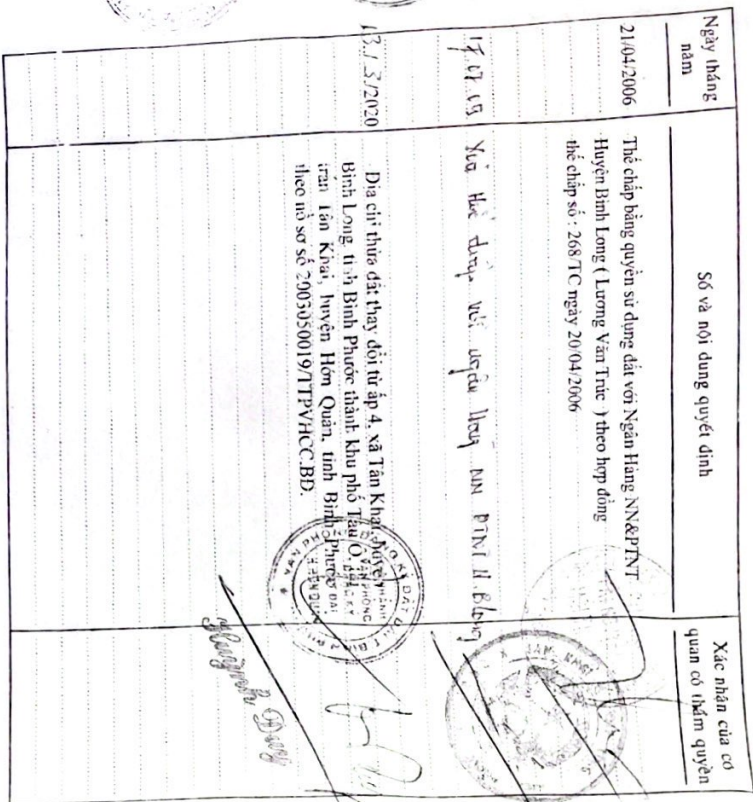 Ngày tháng
năm
Số và nội dung quyết định
Xác nhận của cơ
quan có thẩm quyền
21/04/2006
Thế chấp bằng quyền sử dụng đất với Ngân Hàng NN&PTNT
Huyện Bình Long ( Lương Văn Trúc ) theo hợp đồng
thế chấp số : 268/TC ngày 20/04/2006
17.07.09
NN PTNT H. B.Long
13/3/2020
Địa chỉ thửa đất thay đổi từ ấp 4, xã Tân Khai, huyện
Bình Long, tỉnh Bình Phước thành khu phố Tàu Ô,
trấn Tân Khai, huyện Hớn Quản, tỉnh Bình Phước
theo hồ sơ số 2003050019/TTPVHCC.BD.
Huỳnh Duy